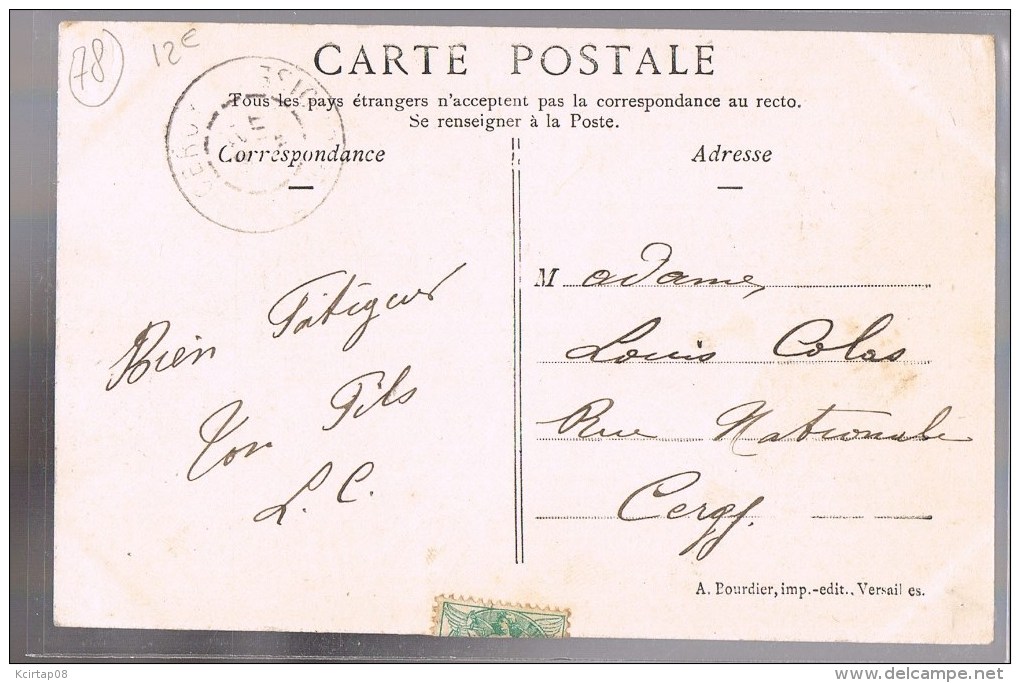 78
12€
CARTE POSTALE
Tous les pays étrangers n'acceptent pas la correspondance au recto.
Se renseigner à la Poste.
Correspondance
Bien Fatiguer
Ton Fils
L. C.
Adresse
Madame,
Louis Colas
Rue Nationale
Cergy.
A. Bourdier, imp.-edit., Versail es.
Kcirtap08
delcampe.net